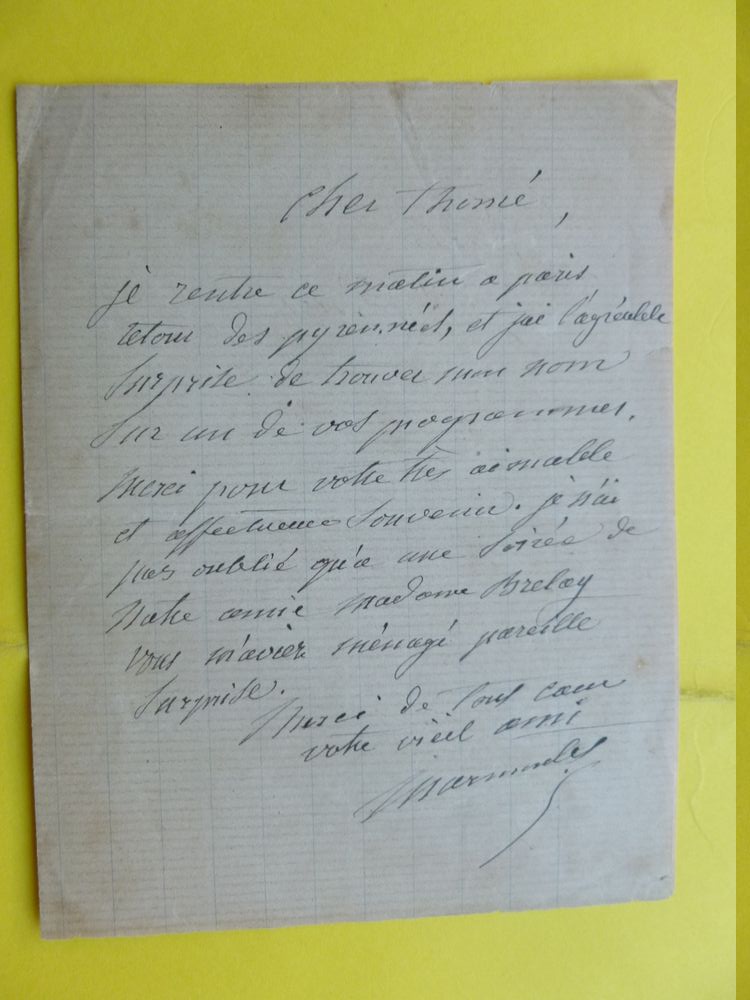 Cher Thomé,
je rentre ce matin a paris
retour des pyrennées, et jai l'agréable
surprise de trouver mon nom
sur un de vos programmes.
Merci pour votre très aimable
et affectueux souvenir. je n'ai
pas oublié qu'a une soirée de
notre amie madame Breloy
vous m'aviez ménagé pareille
surprise.
Merci de tout cœur
votre vieil ami
Marmontel